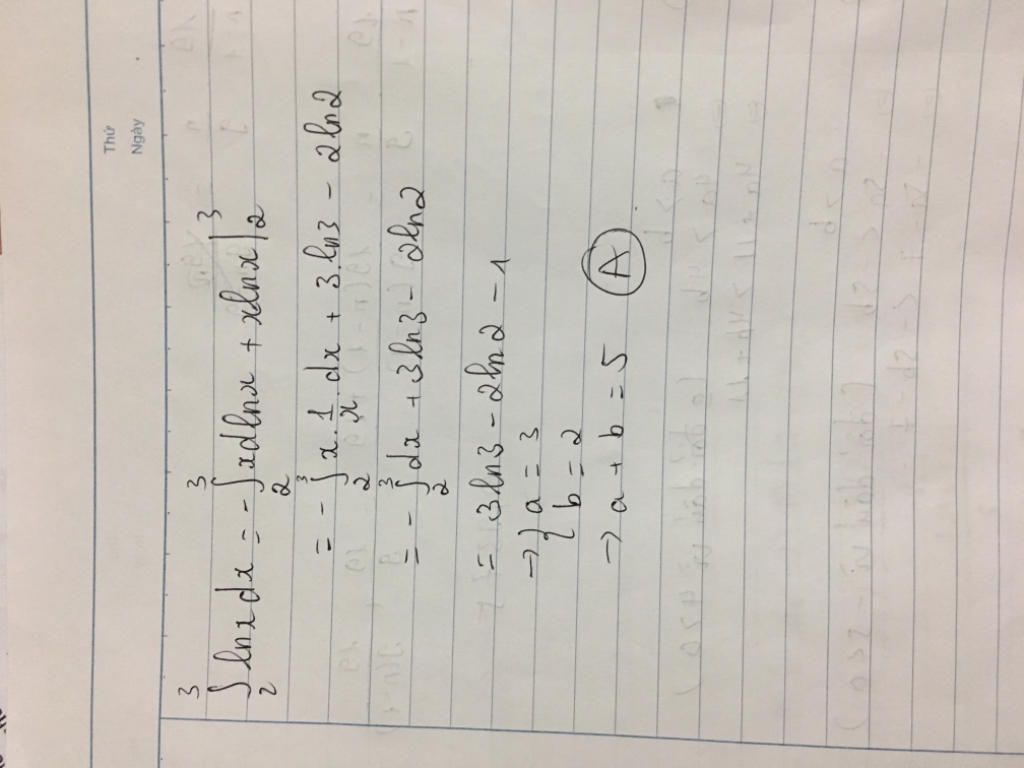 Thứ
Ngày
∫₂³ lnx dx = - ∫₂³ xdlnx + xlnx |₂³
= - ∫₂³ x. 1/x dx + 3.ln3 - 2ln2
= - ∫₂³ dx + 3ln3 - 2ln2
= 3ln3 - 2ln2 - 1
→ { a = 3
b = 2
→ a + b = 5 A